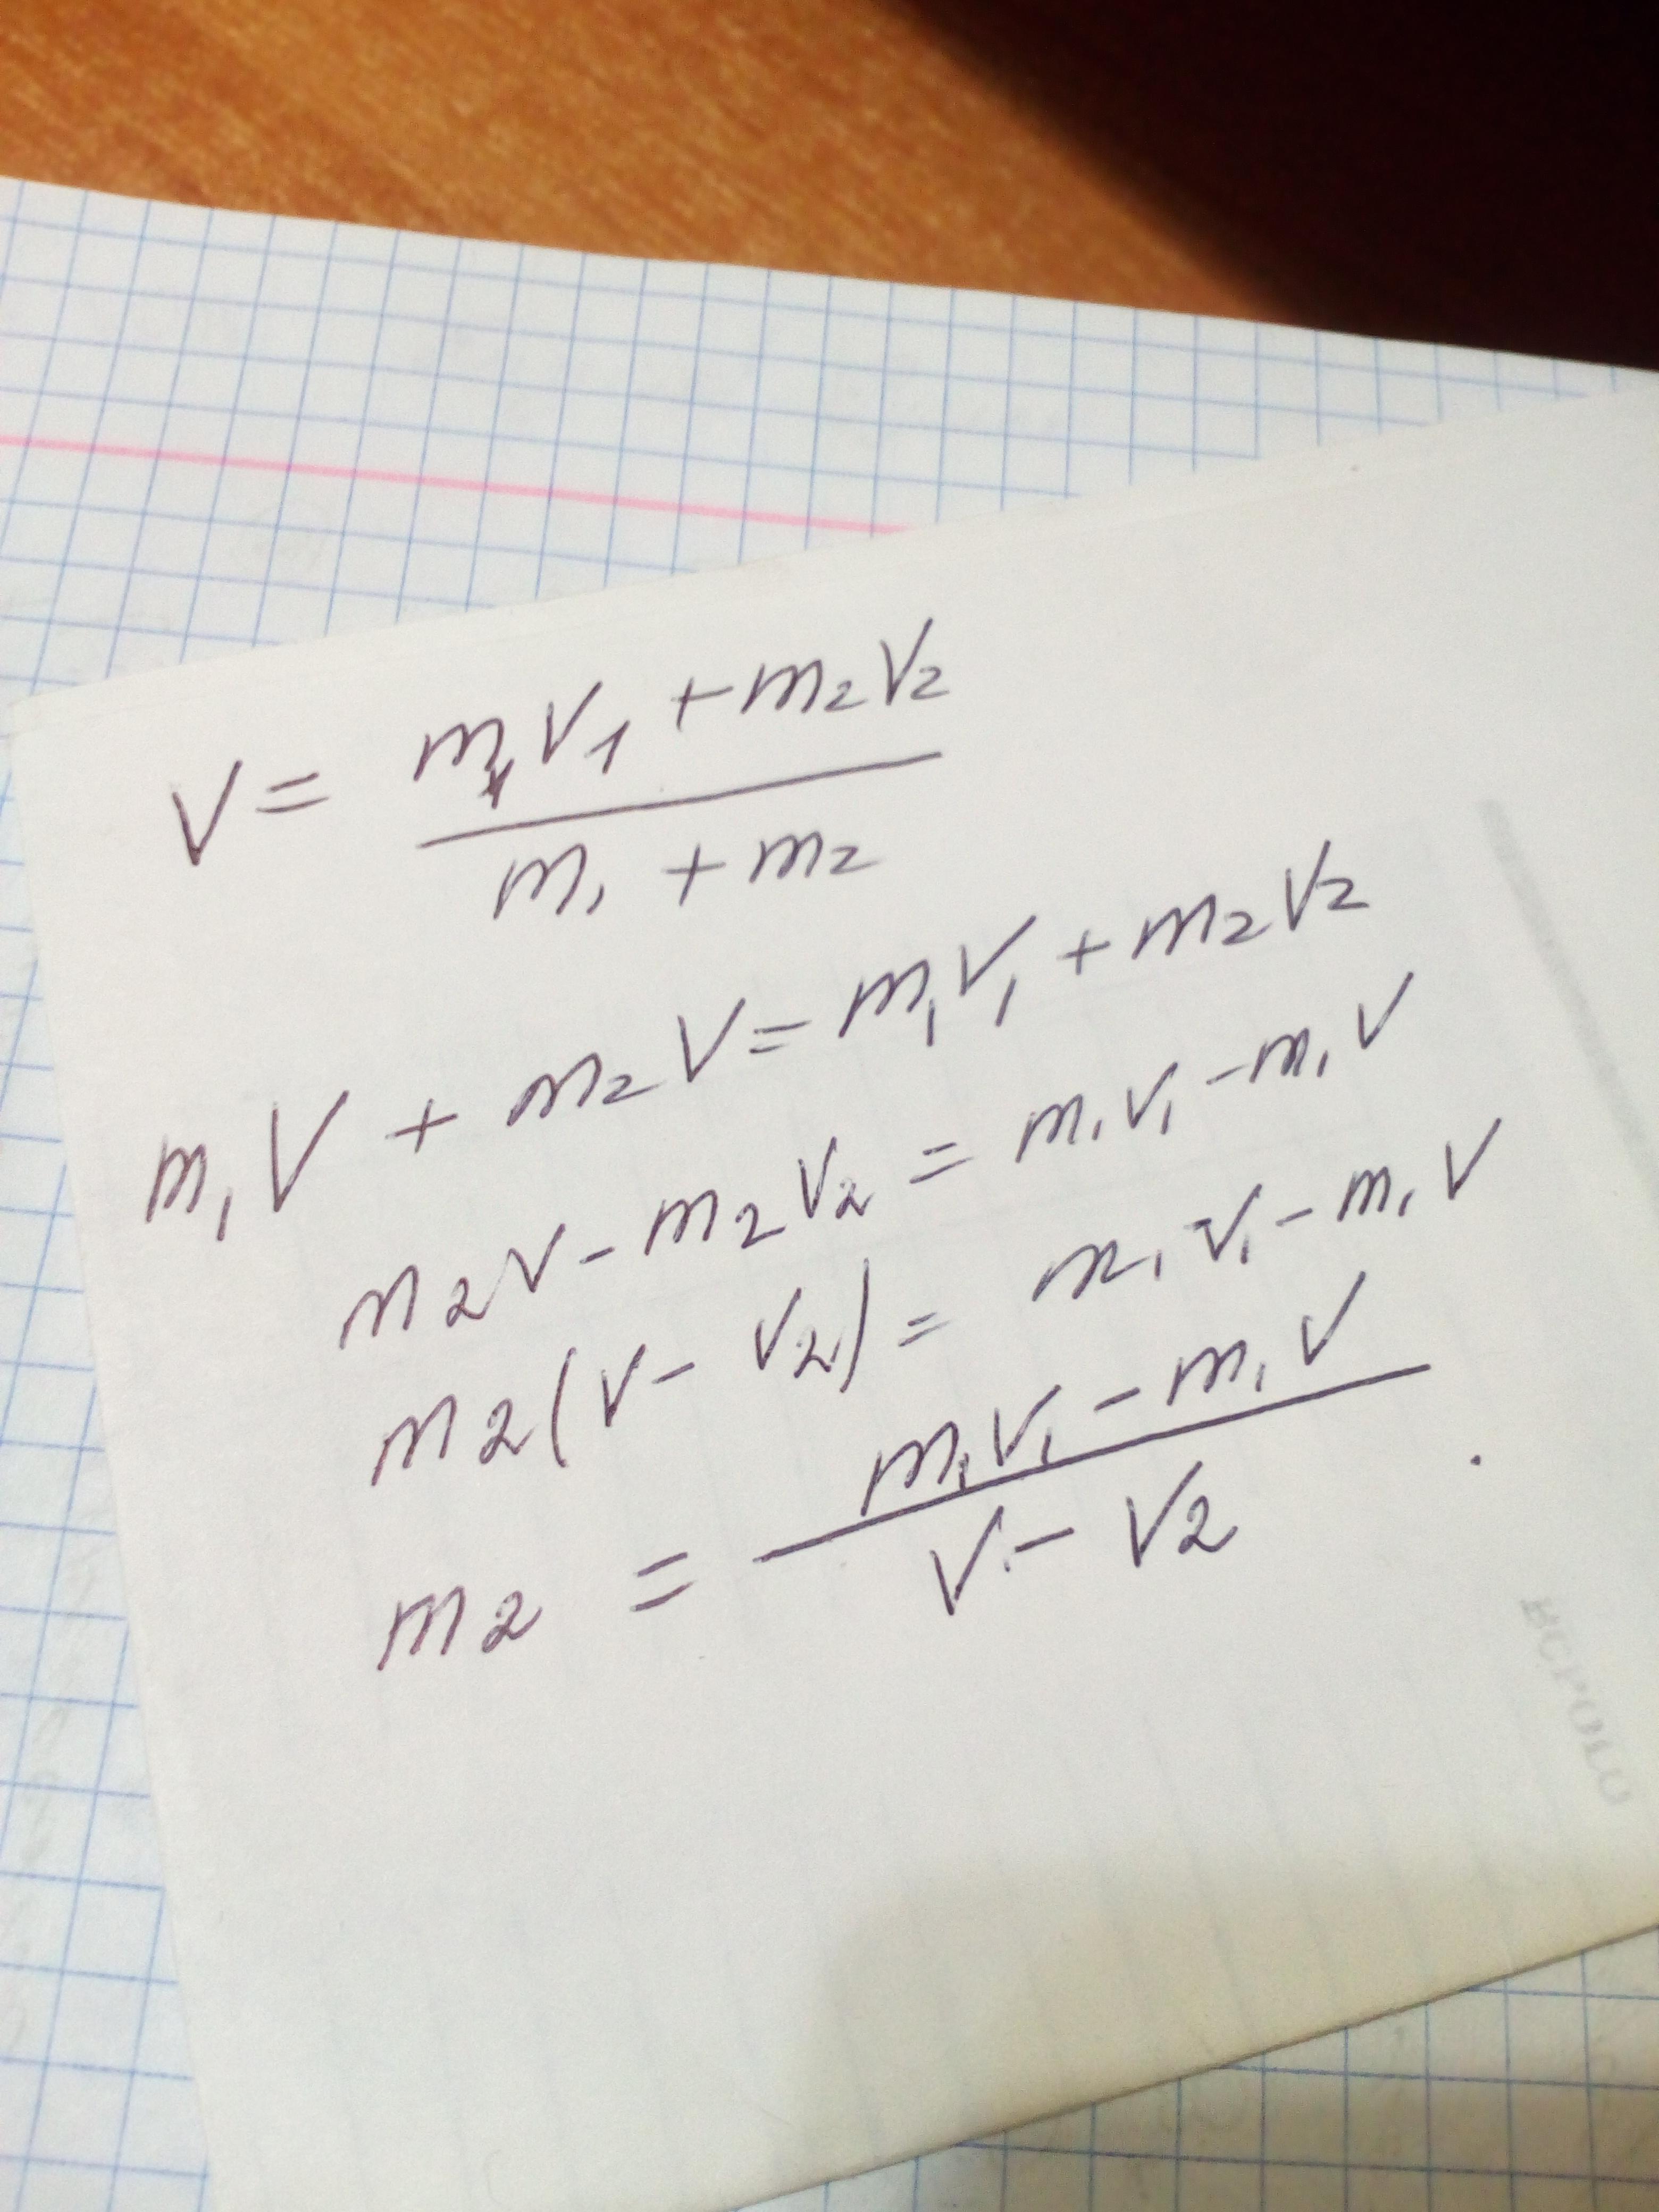 V = (m₁V₁ + m₂V₂) / (m₁ + m₂)
m₁V + m₂V = m₁V₁ + m₂V₂
m₂V - m₂V₂ = m₁V₁ - m₁V
m₂(V - V₂) = m₁V₁ - m₁V
m₂ = (m₁V₁ - m₁V) / (V - V₂)